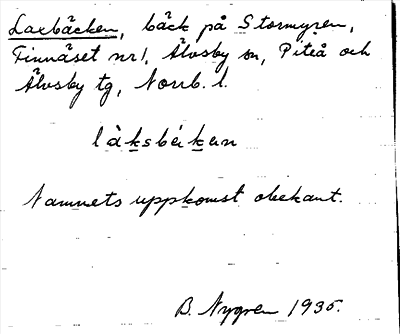 Laxbäcken, bäck på Stormyren,
Finnäset nr 1, Älvsby sn, Piteå och
Älvsby tg, Norrb. l.
làksbékan
Namnets uppkomst obekant.
B. Nygren 1935.